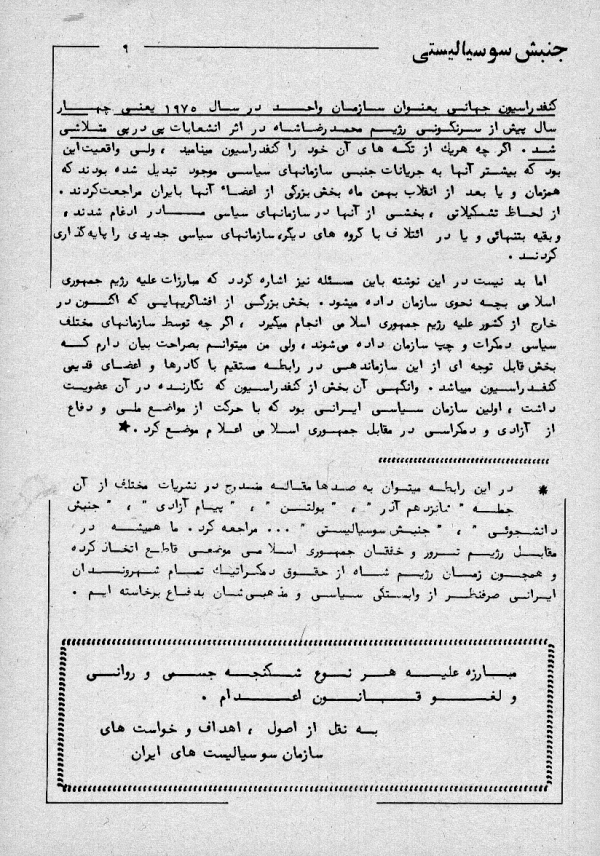 جنبش سوسیالیستی
۹
کنفدراسیون جهانی بعنوان سازمان واحد در سال ۱۹۷۵ یعنی چهار
سال پیش از سرنگونی رژیم محمدرضاشاه در اثر انشعابات پی در پی متلاشی
شد . اگر چه هریک از تکه های آن خود را کنفدراسیون مینامید ، ولی واقعیت این
بود که بیشتر آنها به جریانات جنبی سازمانهای سیاسی موجود تبدیل شده بودند که
همزمان و یا بعد از انقلاب بهمن ماه بخش بزرگی از اعضاء آنها بایران مراجعت کردند .
از لحاظ تشکیلاتی ، بخشی از آنها در سازمانهای سیاسی مادر ادغام شدند ،
و بقیه بتنهائی و یا در ائتلاف با گروه های دیگر، سازمانهای سیاسی جدیدی را پایه گذاری
کردند .
اما بد نیست در این نوشته باین مسئله نیز اشاره گردد که مبارزات علیه رژیم جمهوری
اسلامی بچه نحوی سازمان داده میشود . بخش بزرگی از افشاگریهایی که اکنون در
خارج از کشور علیه رژیم جمهوری اسلامی انجام میگیرد ، اگر چه توسط سازمانهای مختلف
سیاسی دمکرات و چپ سازمان داده می‌شوند ، ولی من میتوانم بصراحت بیان دارم که
بخش قابل توجه ای از این سازماندهی در رابطه مستقیم با کادرها و اعضای قدیمی
کنفدراسیون میباشد . وانگهی آن بخش از کنفدراسیون که نگارنده در آن عضویت
داشت ، اولین سازمان سیاسی ایرانی بود که با حرکت از مواضع ملی و دفاع
از آزادی و دمکراسی در مقابل جمهوری اسلامی اعلام موضع کرد . ★
* در این رابطه میتوان به صدها مقاله مندرج در نشریات مختلف از آن
جمله " شانزدهم آذر " ، " بولتن " ، " پیام آزادی " ، " جنبش
دانشجوئی " ، " جنبش سوسیالیستی " ... مراجعه کرد . ما همیشه در
مقابل رژیم ترور و خفقان جمهوری اسلامی موضعی قاطع اتخاذ کرده
و همچون زمان رژیم شاه از حقوق دمکراتیک تمام شهروندان
ایرانی صرفنظر از وابستگی سیاسی و مذهبی‌شان بدفاع برخاسته ایم .
مبارزه علیه هر نوع شکنجه جسمی و روانی
و لغو قانون اعدام .
به نقل از اصول ، اهداف و خواست های
سازمان سوسیالیست های ایران